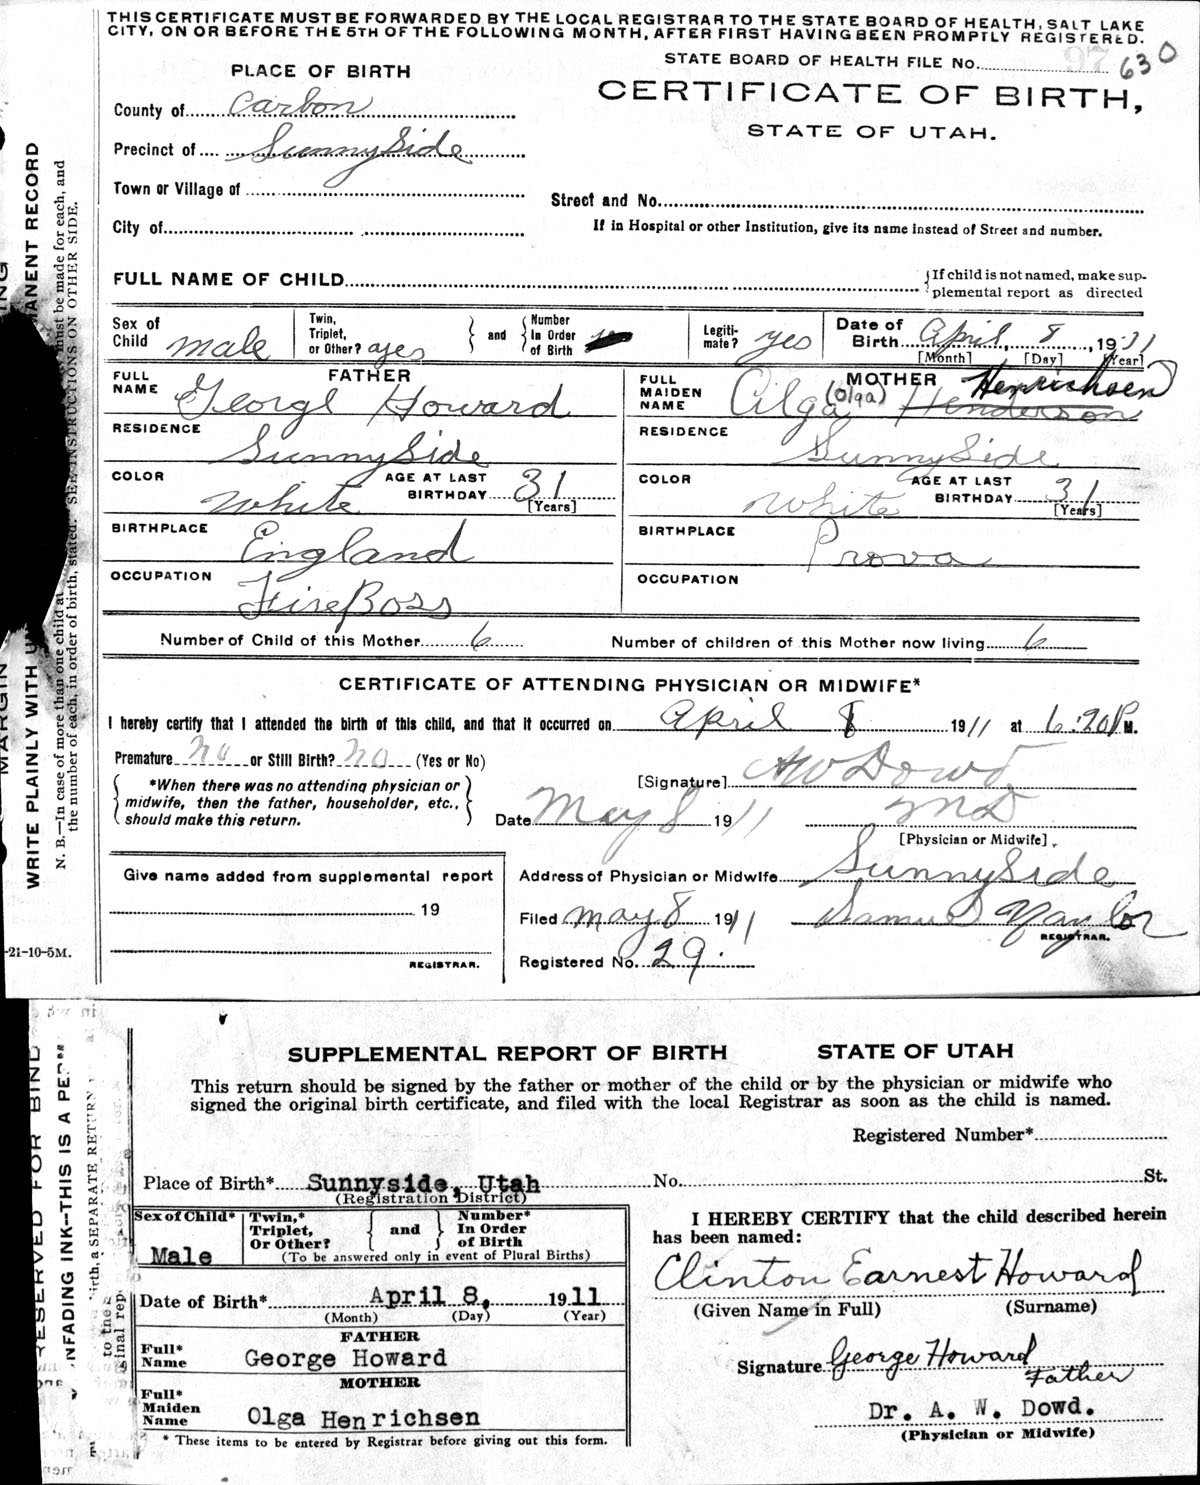 THIS CERTIFICATE MUST BE FORWARDED BY THE LOCAL REGISTRAR TO THE STATE BOARD OF HEALTH, SALT LAKE
CITY, ON OR BEFORE THE 5TH OF THE FOLLOWING MONTH, AFTER FIRST HAVING BEEN PROMPTLY REGISTERED.
STATE BOARD OF HEALTH FILE No. 97 630
PLACE OF BIRTH
CERTIFICATE OF BIRTH,
STATE OF UTAH.
County of Carbon
Precinct of SunnySide
Town or Village of
Street and No.
City of
If in Hospital or other Institution, give its name instead of Street and number.
FULL NAME OF CHILD
{If child is not named, make sup-
plemental report as directed
Sex of Child male
Twin, Triplet, or Other? yes
and
Number In Order of Birth
Legiti-mate? yes
Date of Birth April 8, 1911
[Month] [Day] [Year]
FATHER
FULL NAME George Howard
RESIDENCE SunnySide
COLOR White
AGE AT LAST BIRTHDAY 31 [Years]
BIRTHPLACE England
OCCUPATION Fire Boss
MOTHER
FULL MAIDEN NAME Cilga (Olga) Henderson Henrichsen
RESIDENCE SunnySide
COLOR White
AGE AT LAST BIRTHDAY 31 [Years]
BIRTHPLACE Provo
OCCUPATION
Number of Child of this Mother 6
Number of children of this Mother now living 6
CERTIFICATE OF ATTENDING PHYSICIAN OR MIDWIFE*
I hereby certify that I attended the birth of this child, and that it occurred on April 8 1911 at 6:20 P M.
Premature No or Still Birth? No (Yes or No)
*When there was no attending physician or
midwife, then the father, householder, etc.,
should make this return.
[Signature] AW Dowd
Date May 8 1911
MD
[Physician or Midwife].
Give name added from supplemental report
19
REGISTRAR.
Address of Physician or Midwife SunnySide
Filed May 8 1911 Samuel Naylor
REGISTRAR.
Registered No. 29
-21-10-5M.
WRITE PLAINLY WITH
MANENT RECORD
N. B.—In case of more than one child at
must be made for each, and
the number of each, in order of birth, stated. SEE INSTRUCTIONS ON OTHER SIDE.
MARGIN
SUPPLEMENTAL REPORT OF BIRTH STATE OF UTAH
This return should be signed by the father or mother of the child or by the physician or midwife who
signed the original birth certificate, and filed with the local Registrar as soon as the child is named.
Registered Number*
Place of Birth* Sunnyside, Utah No. St.
(Registration District)
Sex of Child* Male
Twin,* Triplet, Or Other?
and
Number* In Order of Birth
(To be answered only in event of Plural Births)
Date of Birth* April 8, 1911
(Month) (Day) (Year)
FATHER
Full* Name George Howard
MOTHER
Full* Maiden Name Olga Henrichsen
* These items to be entered by Registrar before giving out this form.
I HEREBY CERTIFY that the child described herein
has been named:
Clinton Earnest Howard
(Given Name in Full) (Surname)
Signature George Howard
Father
Dr. A. W. Dowd.
(Physician or Midwife)
RESERVED FOR BIND
NFADING INK--THIS IS A PE
irth, a SEPARATE RETURN